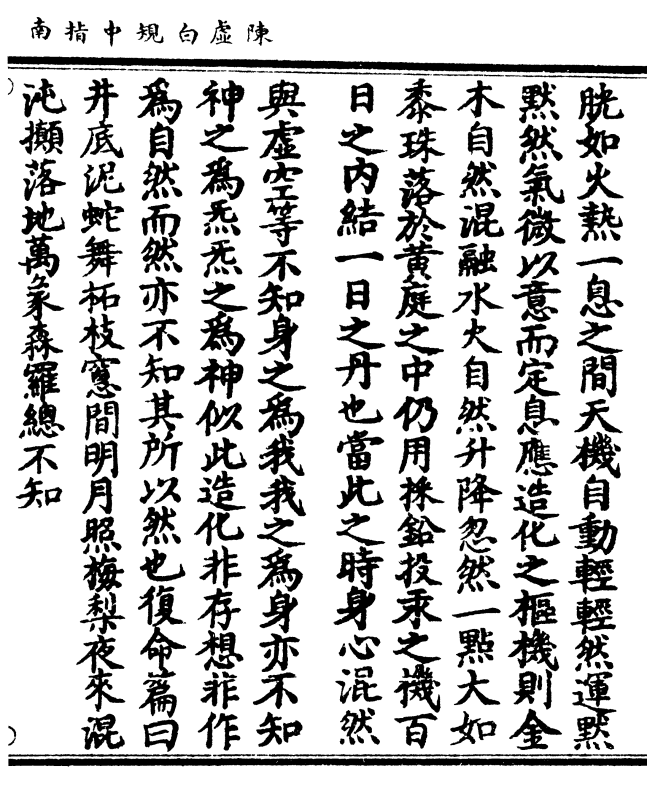 陳虛白規中指南
胱如火熱一息之間天機自動輕輕然運默
默然氣微以意而定息應造化之樞機則金
木自然混融水火自然升降忽然一點大如
黍珠落於黃庭之中仍用採鉛投汞之機百
日之內結一日之丹也當此之時身心混然
與虛空等不知身之為我我之為身亦不知
神之為炁炁之為神似此造化非存想非作
為自然而然亦不知其所以然也復命篇曰
井底泥蛇舞柘枝窻間明月照梅梨夜來混
沌攧落地萬象森羅總不知